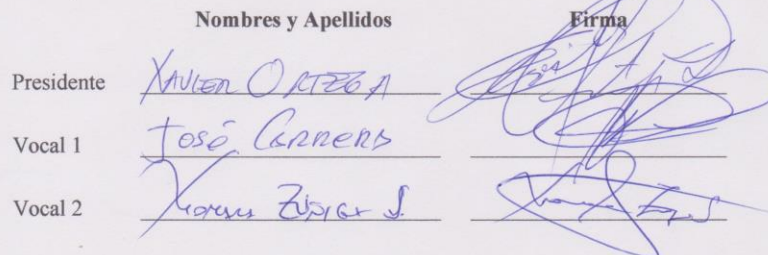 Nombres y Apellidos Firma
Presidente XAVIER ORTEGA
Vocal 1 José CARRERA
Vocal 2 ZÚÑIGA S.